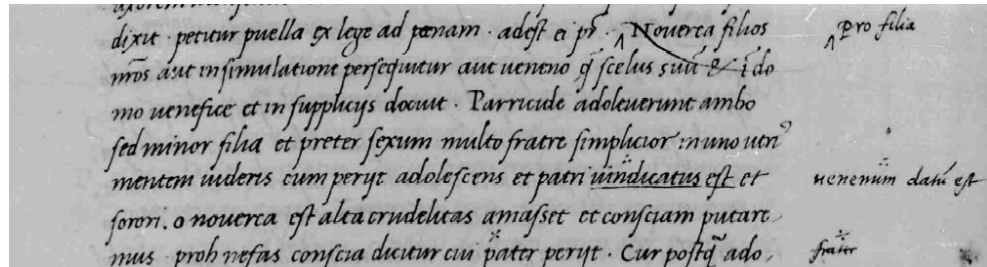 dixit · petitur puella ex lege ad penam · adest ei pr̄ · Nouerca filios
Pro filia
nr̄os aut insimulatione persequitur aut ueneno q̄ scelus suū & ī do
mo uenefice et in supplicijs docuit · Parricide adoleuerunt ambo
sed minor filia et preter sexum multo fratre simplicior in uno
mentem uideris cum perijt adolescens et patri uindicatus est et
uenenum datū est
sorori. o nouerca est alta crudelitas amasset et consciam putare
mus · proh nefas conscia dicitur cui pater perijt · Cur postq̄ ado
frater